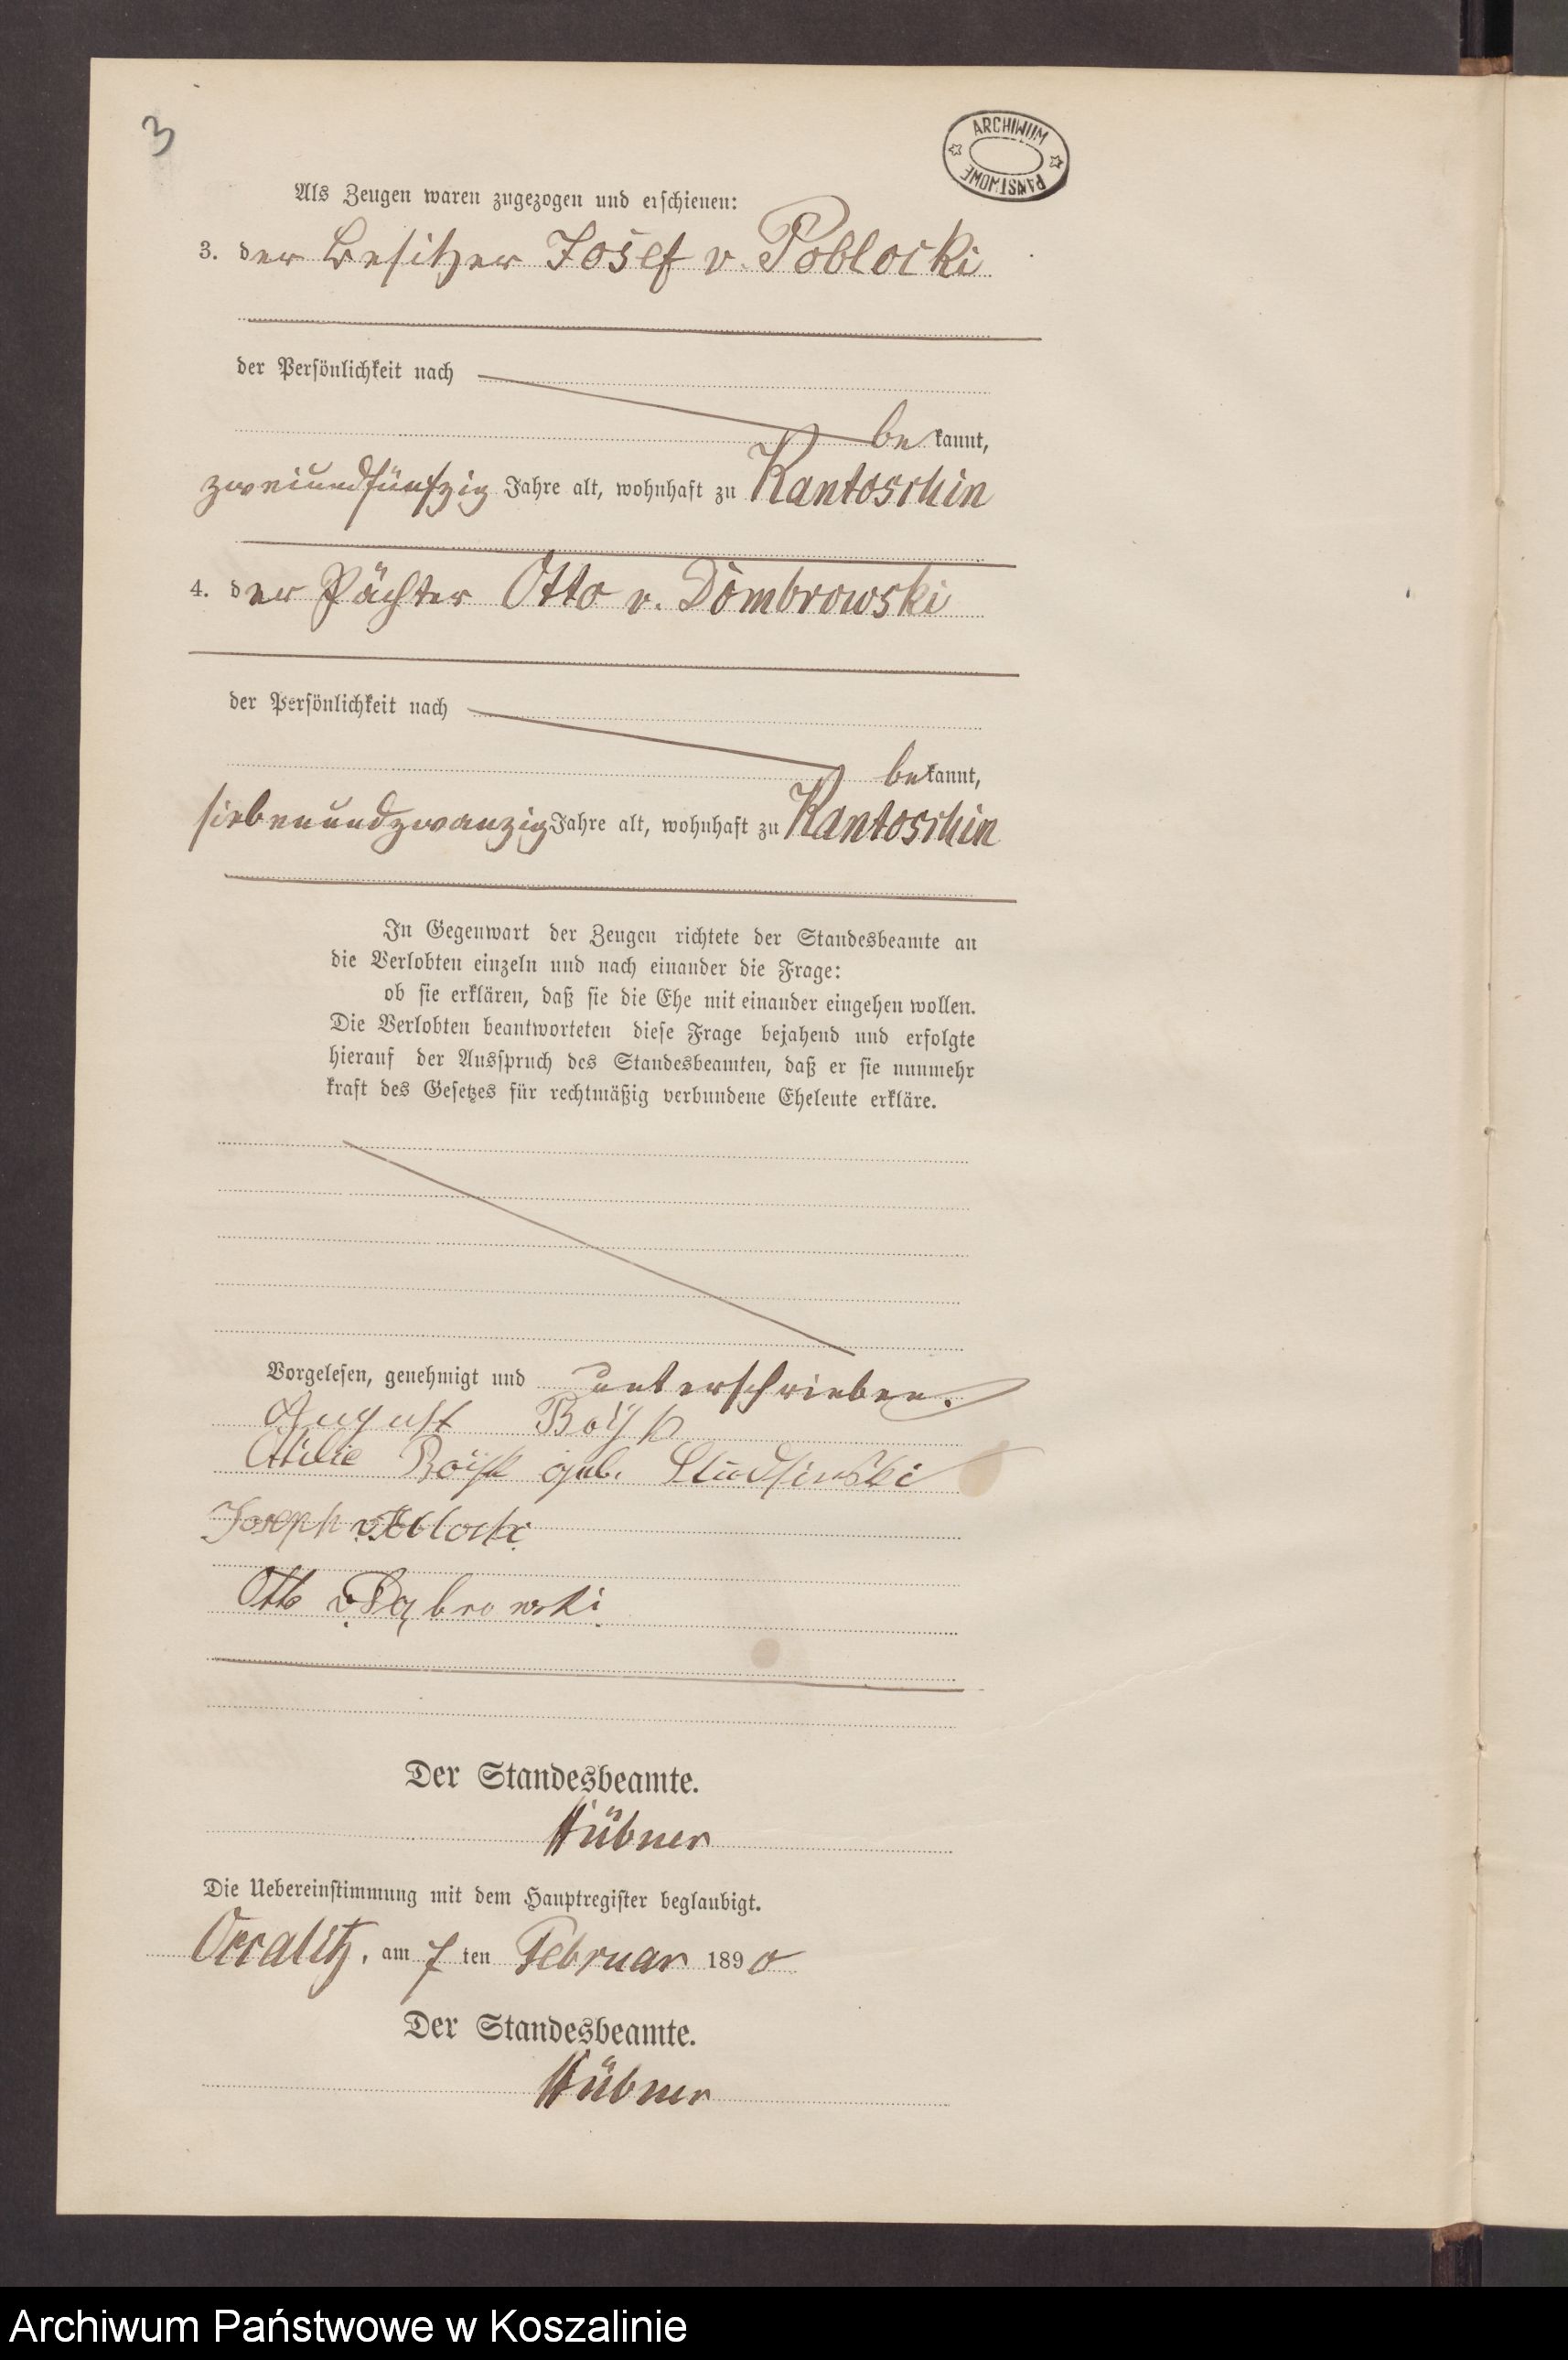 3
ARCHIWUM PAŃSTWOWE
Als Zeugen waren zugezogen und erschienen:
3. der Besitzer Josef v. Poblocki
der Persönlichkeit nach
bekannt,
zweiundfünfzig Jahre alt, wohnhaft zu Kantoschin
4. der Pächter Otto v. Dombrowski
der Persönlichkeit nach
bekannt,
siebenundzwanzig Jahre alt, wohnhaft zu Kantoschin
In Gegenwart der Zeugen richtete der Standesbeamte an
die Verlobten einzeln und nach einander die Frage:
ob sie erklären, daß sie die Ehe mit einander eingehen wollen.
Die Verlobten beantworteten diese Frage bejahend und erfolgte
hierauf der Ausspruch des Standesbeamten, daß er sie nunmehr
kraft des Gesetzes für rechtmäßig verbundene Eheleute erkläre.
Vorgelesen, genehmigt und unterschrieben.
August
Ottilie geb.
Joseph v. Poblocki
Otto v. Dąbrowski
Der Standesbeamte.
Hübner
Die Uebereinstimmung mit dem Hauptregister beglaubigt.
Occalitz, am 7 ten Februar 1890
Der Standesbeamte.
Hübner
Archiwum Państwowe w Koszalinie